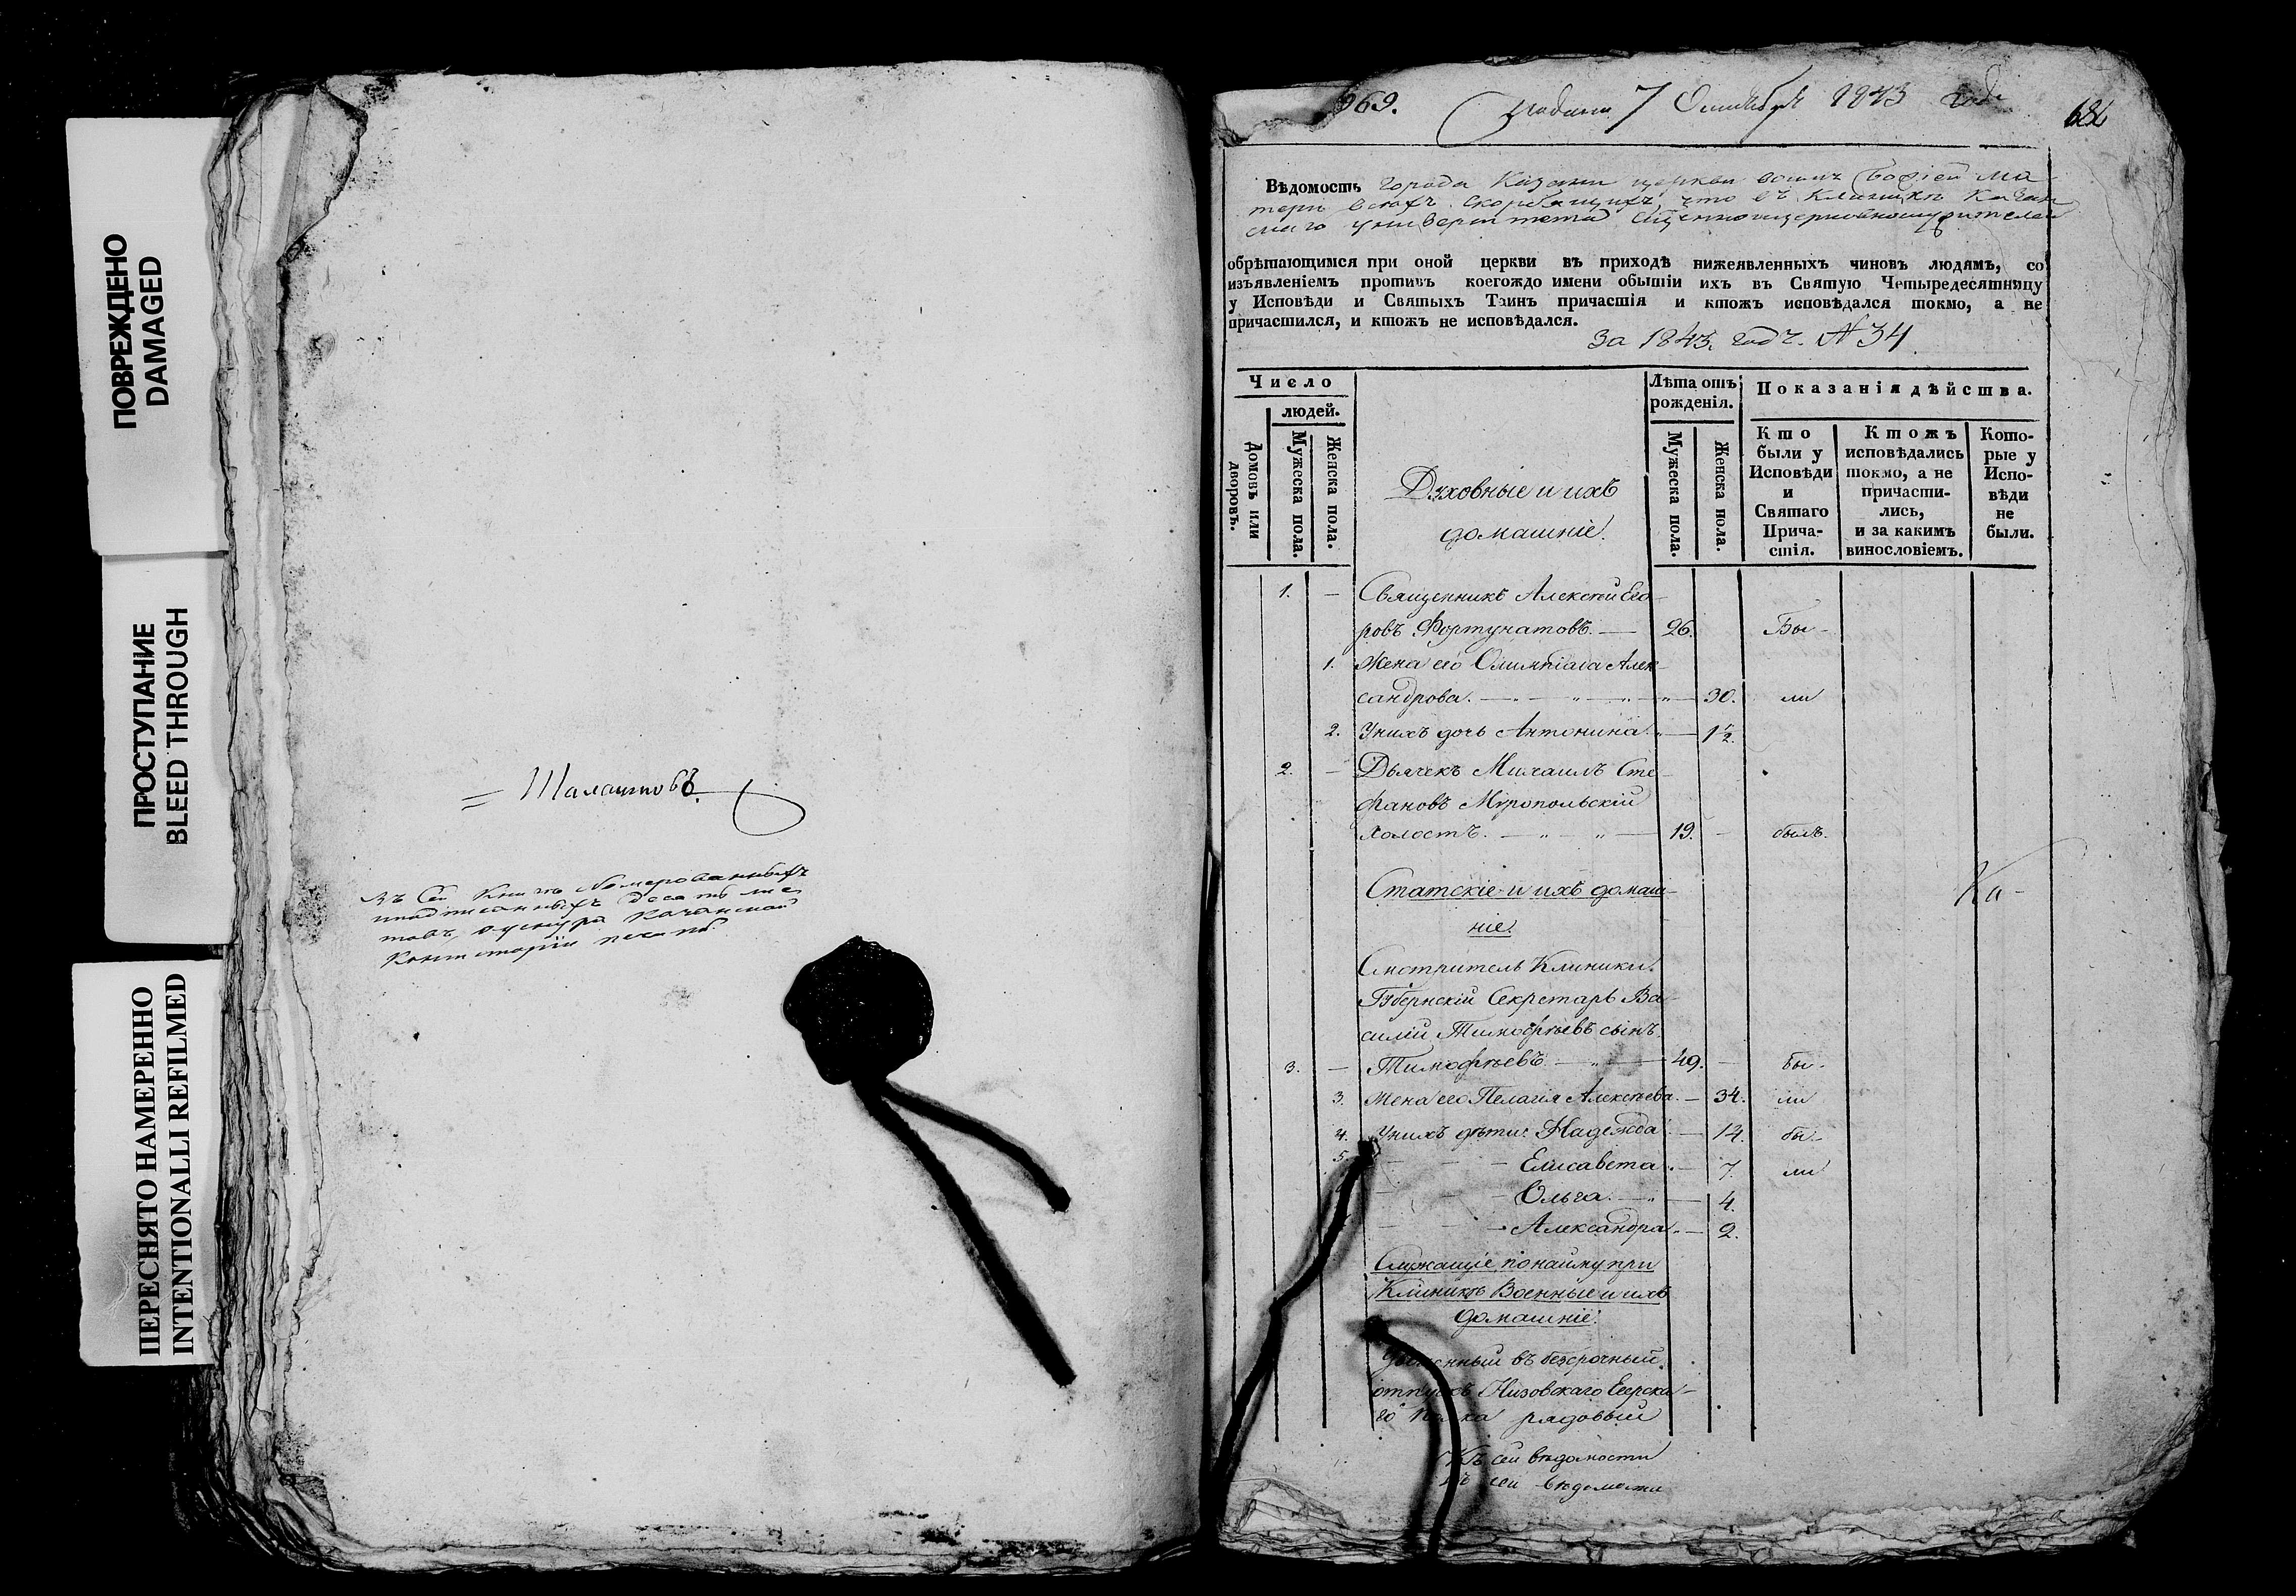 ПОВРЕЖДЕНО
DAMAGED
ПРОСТУПАНИЕ
BLEED THROUGH
ПЕРЕСНЯТО НАМЕРЕННО
INTENTIONALLI REFILMED
Въ сей книгѣ номерованныхъ
консторіи печать
969.
7 Октября 1843 года
Вѣдомость города Казани церкви Божіей Ма-
тери всѣхъ скорбящихъ, что въ Клиникѣ Казан-
скаго университета
обрѣтающимся при оной церкви въ приходѣ нижеявленныхъ чиновъ людямъ, со
изъявленіемъ противъ коегождо имени обытіи ихъ въ Святую Четыредесятницу
у Исповѣди и Святыхъ Таинъ причастія и ктожъ исповѣдался токмо, а не
причастился, и ктожъ не исповѣдался.
За 1843. годъ. № 34
Число
людей.
Домовъ или дворовъ.
Мужеска пола.
Женска пола.
Лѣта отъ рожденія.
Мужеска пола.
Женска пола.
Показанія дѣйства.
Кто были у Исповѣди и Святаго Причастія.
Ктожъ исповѣдались токмо, а не причастились, и за какимъ винословіемъ.
Которые у Исповѣди не были.
Духовные и ихъ
домашніе.
1. — Священникъ Алексѣй Его-
ровъ Фортунатовъ. — 26. Бы-
1. Жена его Олимпіада Алек-
сандрова. — 30. ли
2. У нихъ дочь Антонина. — 1½.
2. — Дьячекъ Михаилъ Сте-
фановъ Мѵропольскій
холостъ. — 19. — былъ.
Статскіе и ихъ домаш-
ніе.
Ка-
Смотритель Клиники.
Губернскій Секретарь Ва-
силій Тимофѣевъ сынъ
3. — Тимофѣевъ — 49. — бы-
3. Жена его Пелагія Алексѣева. — 34. ли
4. У нихъ дѣти: Надежда — 14. бы-
5. — Елисавета. — 7. ли
— Ольга. — 4.
— Александра. — 2.
Служащіе по найму при
Клиникѣ Военные и ихъ
домашніе.
въ безсрочный
отпускъ Низовскаго Егерска-
го полка рядовый
Къ сей вѣдомости
Къ сей вѣдомости